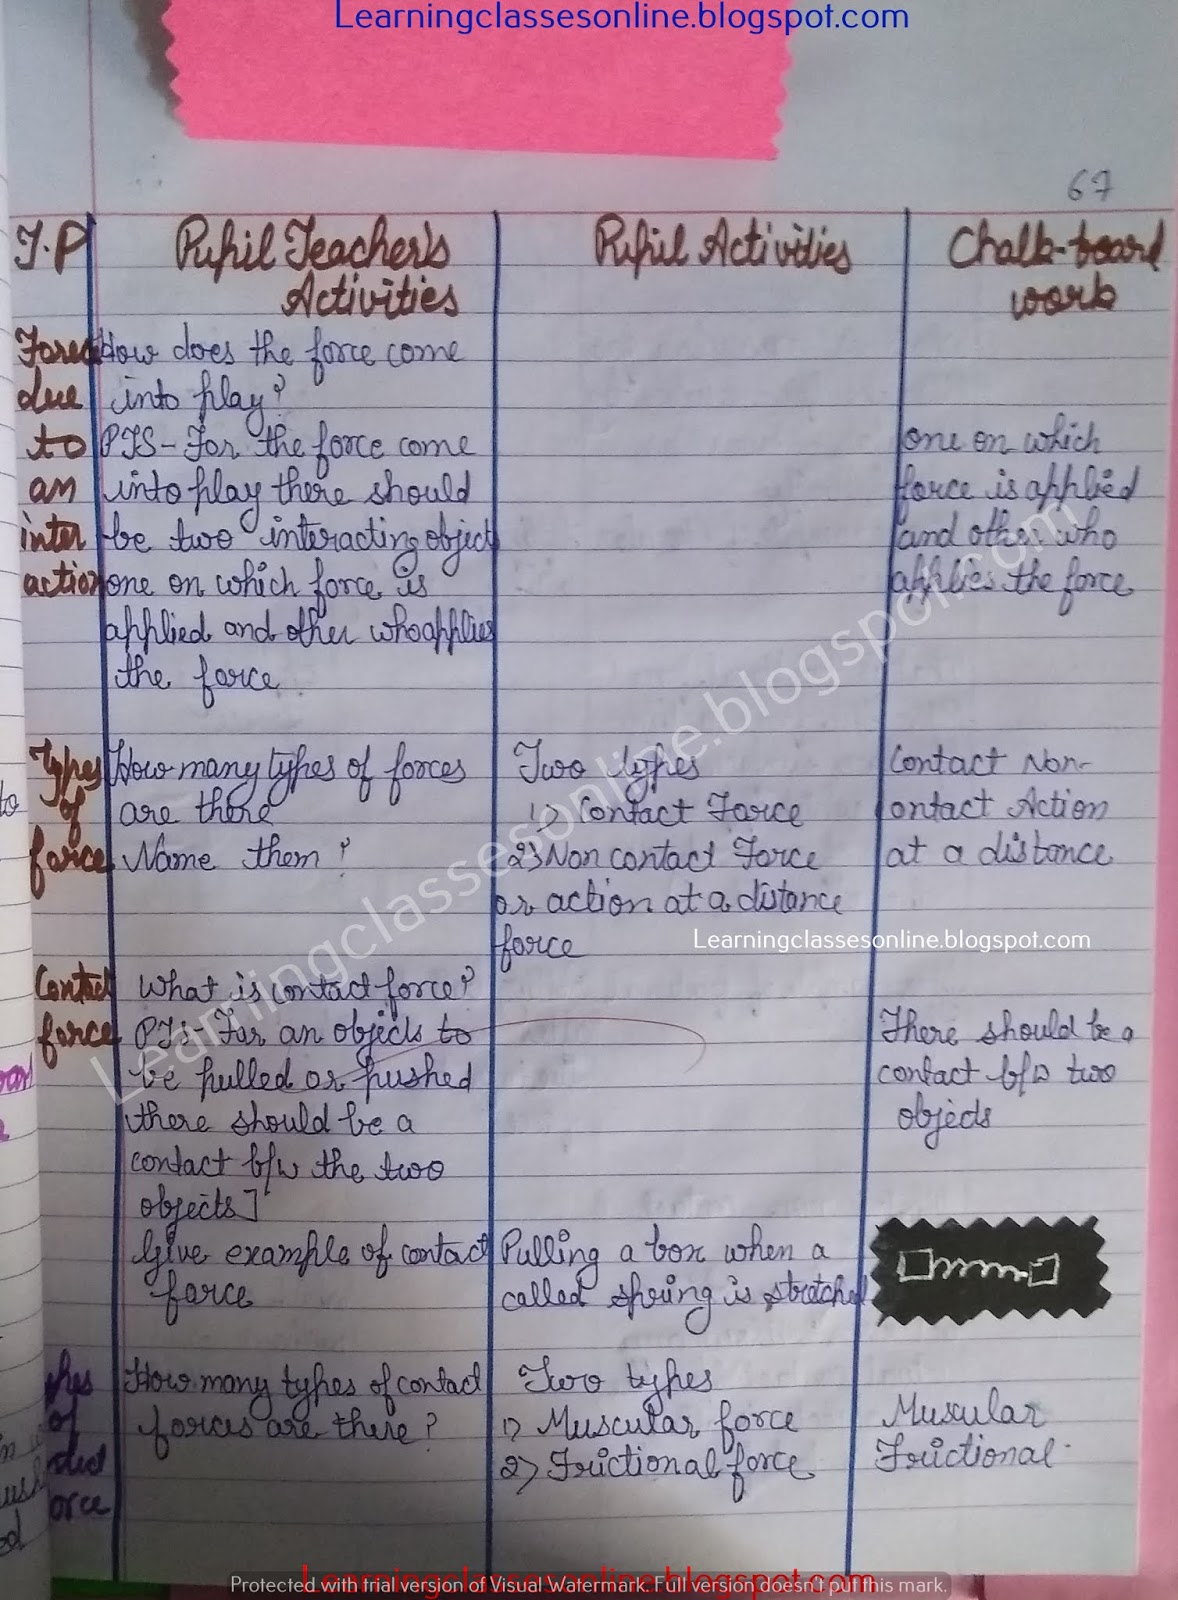 Learningclassesonline.blogspot.com
67
T.P
Pupil Teacher's
Activities
Pupil Activities
Chalk-board
work
Force
due
to
an
inter
action
How does the force come
into play?
PTS - For the force come
into play there should
be two interacting object
one on which force is
applied and other who applies
the force
one on which
force is applied
and other who
applies the force
Types
of
force
How many types of forces
are there
Name them?
Two types
1) Contact Force
2) Non contact Force
or action at a distance
force
Contact Non-
contact Action
at a distance
Learningclassesonline.blogspot.com
Contact
force
What is contact force?
PTS - For an objects to
be pulled or pushed
there should be a
contact b/w the two
objects]
Give example of contact
force
There should be a
contact b/w two
objects
Pulling a box when a
called spring is stretched
of
How many types of contact
forces are there?
Two types
1) Muscular force
2) Frictional force
Muscular
Frictional
Learningclassesonline.blogspot.com
Learningclassesonline.blogspot.com
Protected with trial version of Visual Watermark. Full version doesn't put this mark.